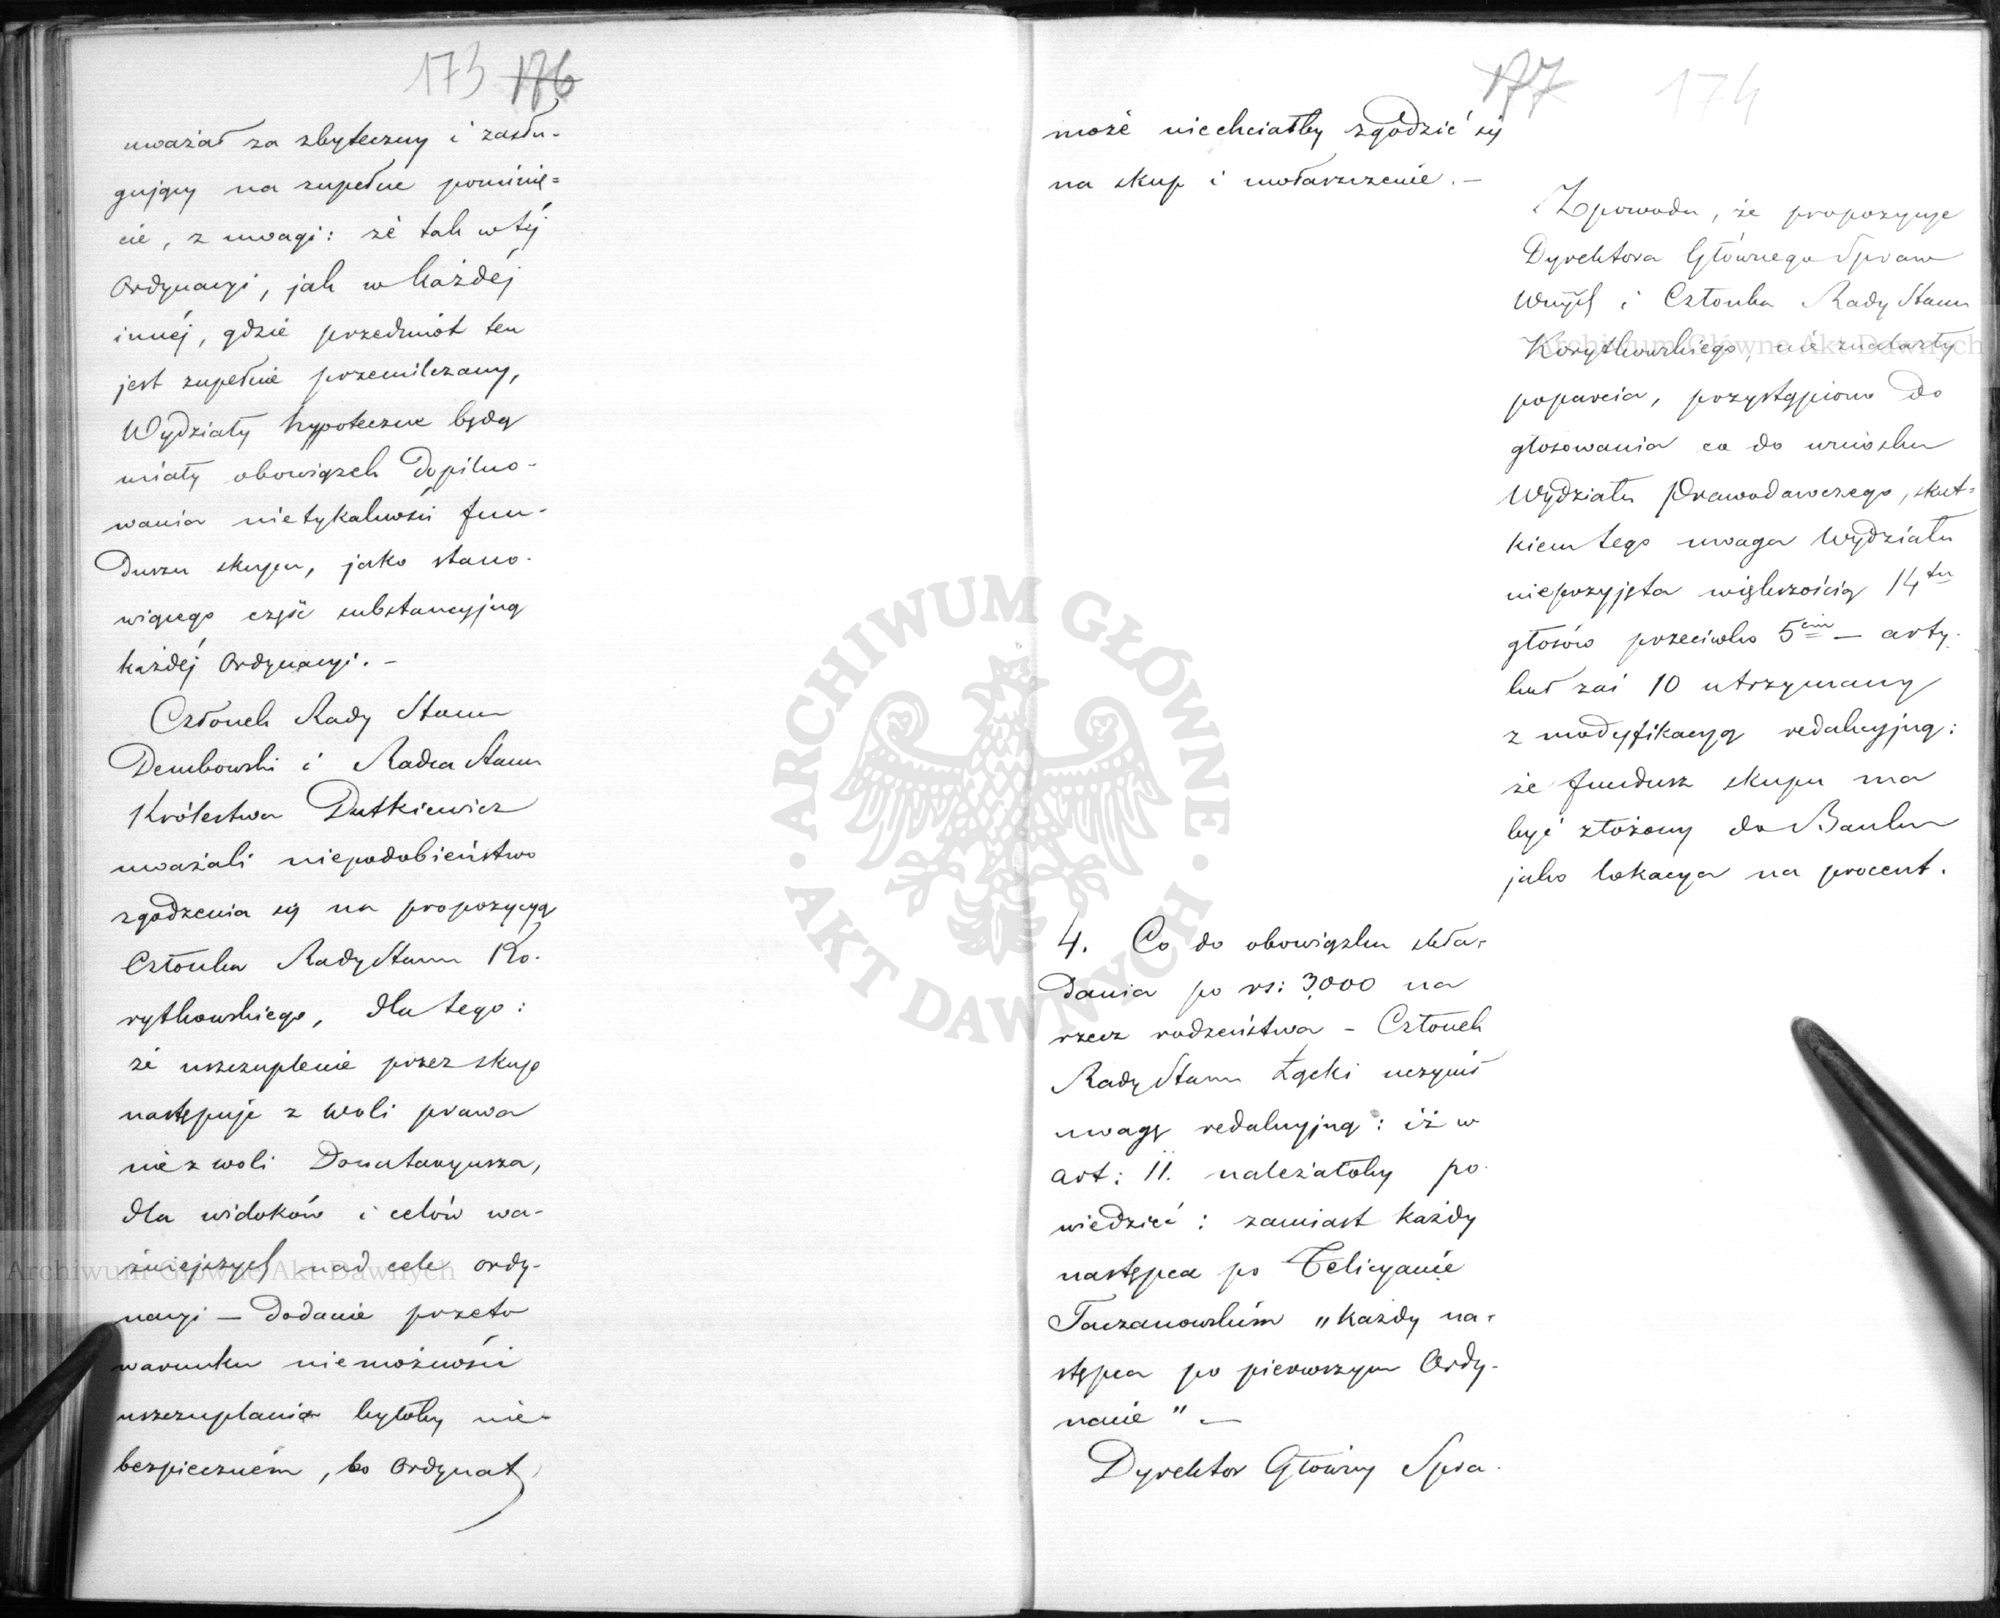 173 176
uważał za zbyteczny i zasłu-
gujący na zupełne pominię=
cie, z uwagi: że tak w téj
Ordynacyi, jak w każdéj
innéj, gdzie przedmiot ten
jest zupełnie przemilczany,
Wydziały hypoteczne będą
miały obowiązek dopilno-
wania nietykalności fun-
duszu skupu, jako stano-
wiącego część substancyjną
każdéj Ordynacyi. –
Członek Rady Stanu
Dembowski i Radca Stanu
Królestwa Dutkiewicz
uważali niepodobieństwo
zgodzenia się na propozycyą
Członka Rady Stanu Ko-
rytkowskiego, dla tego:
że uszczuplenie przez skup
następuje z woli prawa
nie z woli Donataryusza,
dla widoków i celów wa-
żniejszych nad cele ordy-
nacyi – dodanie przeto
warunku niemożności
uszczuplania byłoby nie-
bezpieczném, bo Ordynat
177 174
może niechciałby zgodzić się
na skup i umorzenie. –
Z powodu, że propozycye
Dyrektora Głównego Spraw
Wewnętrz. i Członka Rady Stanu
Korytkowskiego, nie znalazły
poparcia, przystąpiono do
głosowania co do wniosku
Wydziału Prawodawczego, skut=
kiem tego uwaga Wydziału
nieprzyjęta większością 14tu
głosów przeciwko 5ciu – arty-
kuł zaś 10 utrzymany
z modyfikacyą redakcyjną:
że fundusz skupu ma
być złożony do Banku
jako lokacya na procent.
4. Co do obowiązku skła-
dania po rs: 3,000 na
rzecz rodzeństwa – Członek
Rady Stanu Łącki uczynił
uwagę redakcyjną: iż w
art: 11. należałoby po-
wiedzieć: zamiast każdy
następca po Felicyanie
Taczanowskim "każdy na-
stępca po pierwszym Ordy-
nacie" –
Dyrektor Główny Spra-
Archiwum Główne Akt Dawnych
Archiwum Główne Akt Dawnych
ARCHIWUM GŁÓWNE AKT DAWNYCH